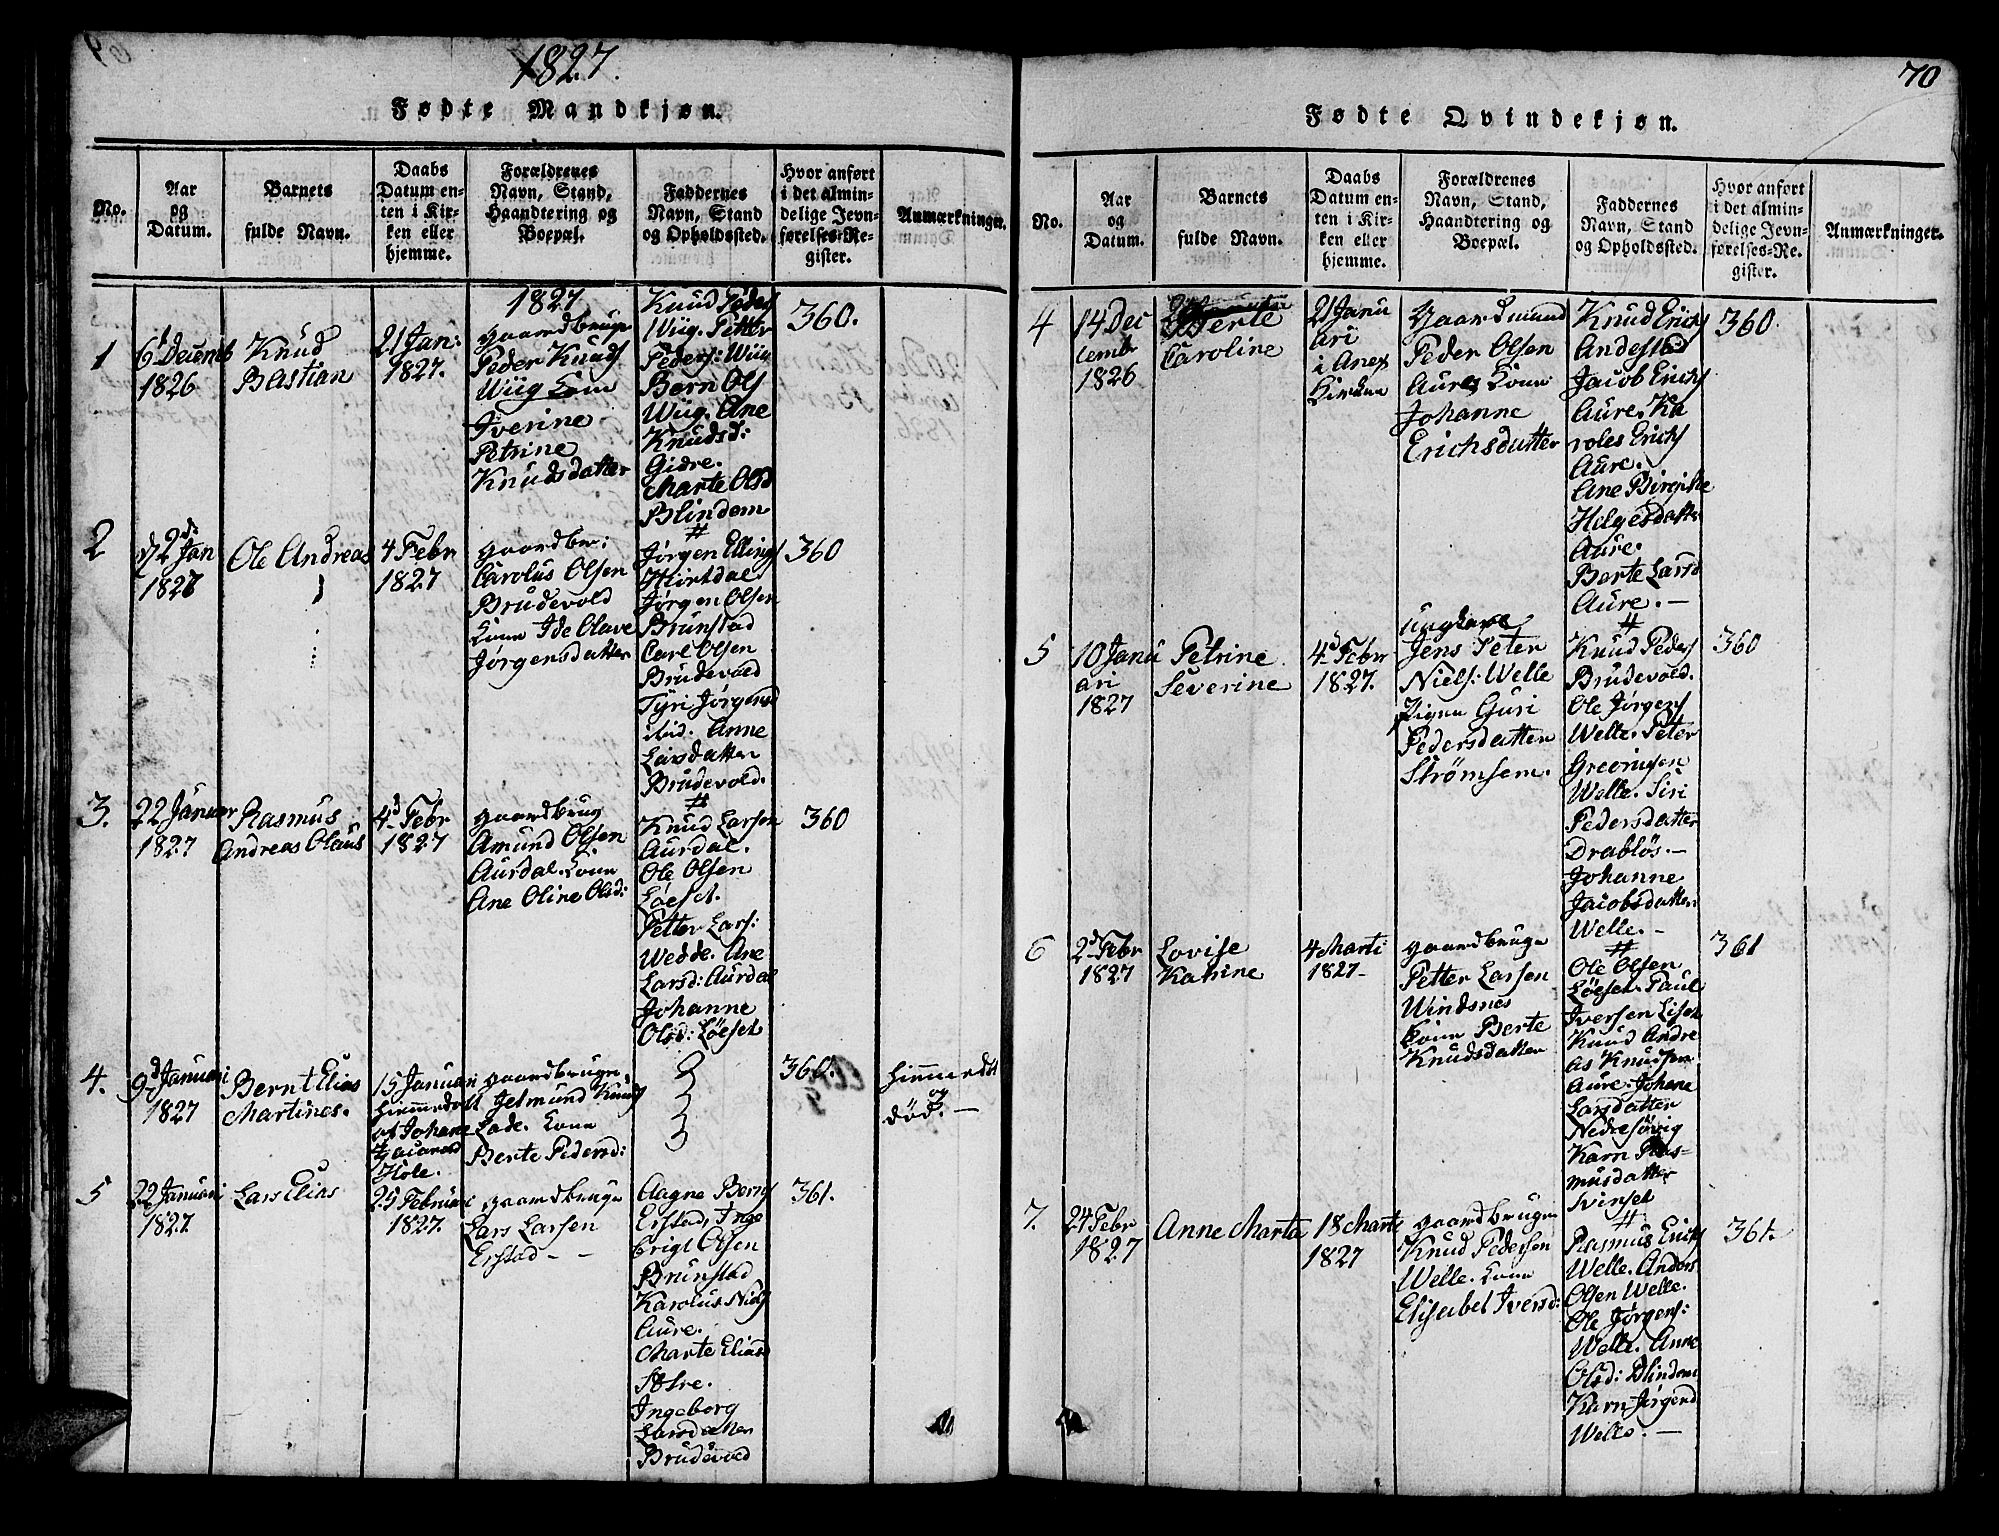 1827.
Fødte Mandkjøn.
No.
Aar
og
Datum.
Barnets
fulde Navn.
Daabs
Datum en-
ten i Kir-
ken eller
hjemme.
Forældrenes
Navn, Stand,
Haandtering og
Boepæl.
Faddernes
Navn, Stand
og Opholdssted.
Hvor anført
i det almin-
delige Jevn-
førelses-Re-
gister.
Anmærkninger.
1827
1
6 Decemb
1826
Knud
Bastian
21 Jan:
1827.
gaardbruger
Peder Knuds
Wiig Kone
Iverine
Petrine
Knudsdatter
Knud Peders
Wiig. Petter
Peders: Wiig
Bern Ols
Wiig. Ane
Knudsd:
Giære.
Marte Olsd
Blindem
360.
2
d 2 Jan
1827
Ole Andreas
4 Febr
1827
gaardbr:
Carolus Olsen
Brudevold
Kone Ide Olave
Jørgensdatter
Jørgen Ellings
Hurtdal
Jørgen Olsen
Brunstad
Carl Olsen
Brudevold
Tyri Jørgensd
ibid. Anne
Larsdatter
Brudevold.
360
3.
22 Januar
1827
Rasmus
Andreas Olaus
4 Febr
1827
gaardbrug
Amund Olsen
Aurdal. Kone
Ane Oline Olsd:
Knud Larsen
Aurdal.
Ole Olsen
Løeset.
Petter Lars:
Wedde. Ane
Larsd: Aurdal
Johanne
Olsd: Løeset
360
4.
9d Januari
1827
Bernt Elias
Martines.
15 Januari
hiemmedøbt
af Johane
Hole.
gaardbruge
Jetmund Knuds
Lade. Kone
Berte Pedersd:
360.
hiemmedøbt
død. —
5
22 Januari
1827.
Lars Elias
25 Februari
1827.
gaardbruge
Lars Larsen
Erstad — —
Aagne Berns
Erstad, Inge
brigt Olsen
Brunstad
Karolus Niels
Aure.
Marte Eliasd
Støre.
Ingeborg
Larsdatter
Brudevold
361.
70
Fødte Qvindekjøn.
No.
Aar
og
Datum.
Barnets
fulde Navn.
Daabs
Datum en-
ten i Kir-
ken eller
hjemme.
Forældrenes
Navn, Stand,
Haandtering og
Boepæl.
Faddernes
Navn, Stand
og Opholdssted.
Hvor anført
i det almin-
delige Jevn-
førelses-Re-
gister.
Anmærkninger.
4
14 Dec
embr
1826
Berte
Caroline
21 Janu
ari
i Anex
Kirken
Gaardmand
Peder Olsen
Aure Kone
Johanne
Erichsdatter
Knud Erichs
Andestad
Jacob Erichs
Aure. Ka
roles Erichs
Aure.
Ane Birgithe
Helgesdatter
Aure.
Berte Larsd
Aure. —
360.
5
10 Janu
ari
1827
Petrine
Severine
4 Febr
1827.
ungkarl
Jens Peter
Niels: Welle
Pigen Guri
Pedersdatter
Strømsem.
Knud Peders
Brudevold.
Ole Jørgens
Welle. Peter
Gregriusen
Welle. Siri
Pedersdatter
Drabløs. —
Johanne
Jacobsdatter
Welle. —
360
6
2d Febr
1827
Lovise
Katrine
4 Marti
1827 —
gaardbruge
Petter Larsen
Windsnes
Kone Berte
Knudsdatter
Ole Olsen
Løeset. Paul
Iversen Liset
Knud Andre
as Knudsen
Aure. Johane
Larsdatter
Nedresøvig
Karn Ras-
musdatter
Svinset
361
7.
24 Febr
1827
Anne Marta
18 Marts
1827
gaardbruge
Knud Pedersen
Welle. Kone
Elisabet Iversd:
Rasmus Erichs
Welle. Anders
Olsen Welle.
Ole Jørgens:
Welle. Anne
Olsd: Blindem
Karn Jørgensd
Welle. —
361.